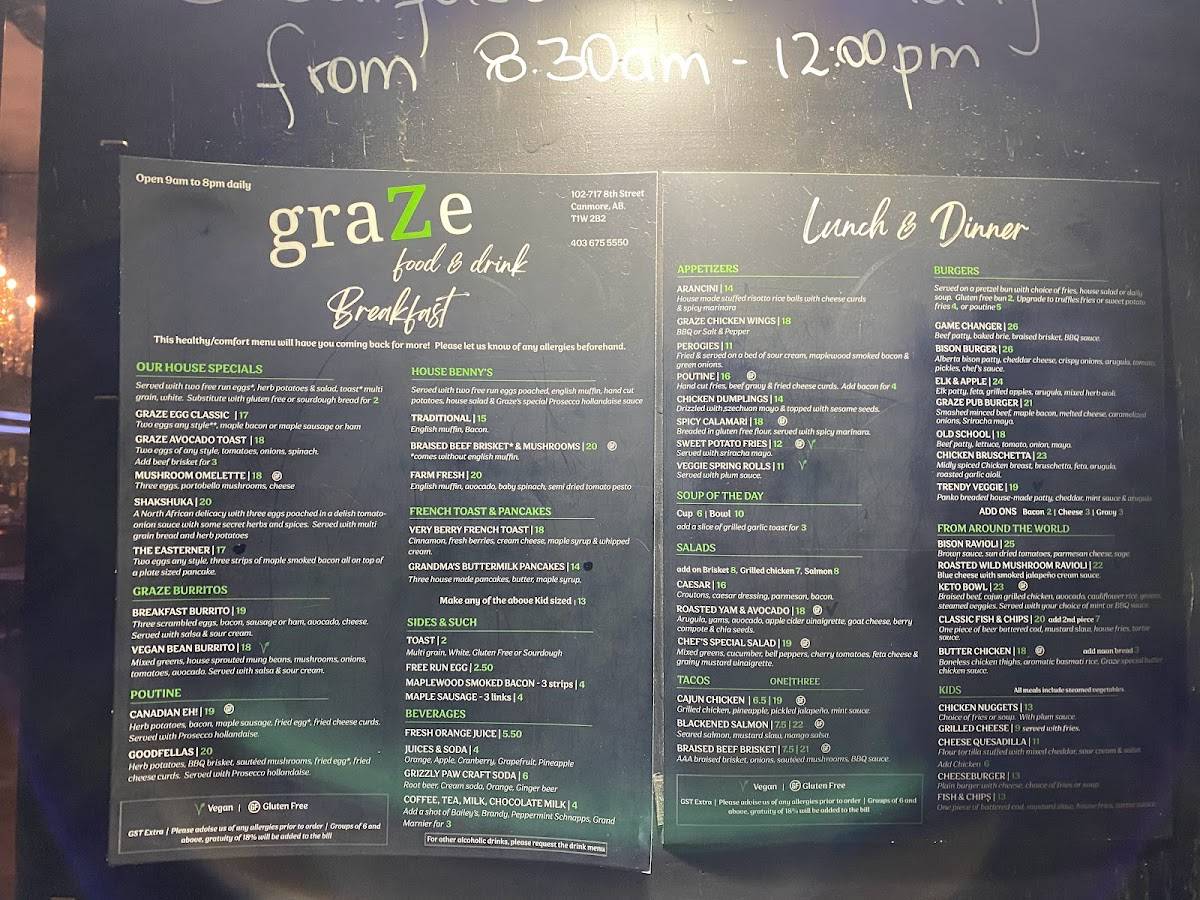 from 8.30am - 12:00pm
Open 9am to 8pm daily
graZe
food & drink
Breakfast
102-717 8th Street
Canmore, AB.
T1W 2B2
403 675 5550
This healthy/comfort menu will have you coming back for more! Please let us know of any allergies beforehand.
OUR HOUSE SPECIALS
Served with two free run eggs*, herb potatoes & salad, toast* multi
grain, white. Substitute with gluten free or sourdough bread for 2
GRAZE EGG CLASSIC | 17
Two eggs any style**, maple bacon or maple sausage or ham
GRAZE AVOCADO TOAST | 18
Two eggs of any style, tomatoes, onions, spinach.
Add beef brisket for 3
MUSHROOM OMELETTE | 18 GF
Three eggs, portobello mushrooms, cheese
SHAKSHUKA | 20
A North African delicacy with three eggs poached in a delish tomato-
onion sauce with some secret herbs and spices. Served with multi
grain bread and herb potatoes
THE EASTERNER | 17
Two eggs any style, three strips of maple smoked bacon all on top of
a plate sized pancake.
GRAZE BURRITOS
BREAKFAST BURRITO | 19
Three scrambled eggs, bacon, sausage or ham, avocado, cheese.
Served with salsa & sour cream.
VEGAN BEAN BURRITO | 18
Mixed greens, house sprouted mung beans, mushrooms, onions,
tomatoes, avocado. Served with salsa & sour cream.
POUTINE
CANADIAN EH! | 19 GF
Herb potatoes, bacon, maple sausage, fried egg*, fried cheese curds.
Served with Prosecco hollandaise.
GOODFELLAS | 20
Herb potatoes, BBQ brisket, sautéed mushrooms, fried egg*, fried
cheese curds. Served with Prosecco hollandaise.
Vegan | GF Gluten Free
GST Extra | Please advise us of any allergies prior to order | Groups of 6 and
above, gratuity of 18% will be added to the bill
HOUSE BENNY'S
Served with two free run eggs poached, english muffin, hand cut
potatoes, house salad & Graze's special Prosecco hollandaise sauce
TRADITIONAL | 15
English muffin, Bacon.
BRAISED BEEF BRISKET* & MUSHROOMS | 20 GF
*comes without english muffin.
FARM FRESH | 20
English muffin, avocado, baby spinach, semi dried tomato pesto
FRENCH TOAST & PANCAKES
VERY BERRY FRENCH TOAST | 18
Cinnamon, fresh berries, cream cheese, maple syrup & whipped
cream.
GRANDMA'S BUTTERMILK PANCAKES | 14
Three house made pancakes, butter, maple syrup.
Make any of the above Kid sized | 13
SIDES & SUCH
TOAST | 2
Multi grain, White, Gluten Free or Sourdough
FREE RUN EGG | 2.50
MAPLEWOOD SMOKED BACON - 3 strips | 4
MAPLE SAUSAGE - 3 links | 4
BEVERAGES
FRESH ORANGE JUICE | 5.50
JUICES & SODA | 4
Orange, Apple, Cranberry, Grapefruit, Pineapple
GRIZZLY PAW CRAFT SODA | 6
Root beer, Cream soda, Orange, Ginger beer
COFFEE, TEA, MILK, CHOCOLATE MILK | 4
Add a shot of Bailey's, Brandy, Peppermint Schnapps, Grand
Marnier for 3
For other alcoholic drinks, please request the drink menu
Lunch & Dinner
APPETIZERS
ARANCINI | 14
House made stuffed risotto rice balls with cheese curds
& spicy marinara
GRAZE CHICKEN WINGS | 18
BBQ or Salt & Pepper
PEROGIES | 11
Fried & served on a bed of sour cream, maplewood smoked bacon &
green onions.
POUTINE | 16 GF
Hand cut fries, beef gravy & fried cheese curds. Add bacon for 4
CHICKEN DUMPLINGS | 14
Drizzled with szechuan mayo & topped with sesame seeds.
SPICY CALAMARI | 18 GF
Breaded in gluten free flour, served with spicy marinara.
SWEET POTATO FRIES | 12 GF
Served with sriracha mayo.
VEGGIE SPRING ROLLS | 11
Served with plum sauce.
SOUP OF THE DAY
Cup 6 | Bowl 10
add a slice of grilled garlic toast for 3
SALADS
add on Brisket 8, Grilled chicken 7, Salmon 8
CAESAR | 16
Croutons, caesar dressing, parmesan, bacon.
ROASTED YAM & AVOCADO | 18 GF
Arugula, yams, avocado, apple cider vinaigrette, goat cheese, berry
compote & chia seeds.
CHEF'S SPECIAL SALAD | 19 GF
Mixed greens, cucumber, bell peppers, cherry tomatoes, feta cheese &
grainy mustard vinaigrette.
TACOS ONE|THREE
CAJUN CHICKEN | 6.5 | 19 GF
Grilled chicken, pineapple, pickled jalapeño, mint sauce.
BLACKENED SALMON | 7.5 | 22 GF
Seared salmon, mustard slaw, mango salsa.
BRAISED BEEF BRISKET | 7.5 | 21 GF
AAA braised brisket, onions, sautéed mushrooms, BBQ sauce.
Vegan | GF Gluten Free
GST Extra | Please advise us of any allergies prior to order | Groups of 6 and
above, gratuity of 18% will be added to the bill
BURGERS
Served on a pretzel bun with choice of fries, house salad or daily
soup. Gluten free bun 2. Upgrade to truffles fries or sweet potato
fries 4, or poutine 5
GAME CHANGER | 26
Beef patty, baked brie, braised brisket, BBQ sauce.
BISON BURGER | 26
Alberta bison patty, cheddar cheese, crispy onions, arugula, tomato,
pickles, chef's sauce.
ELK & APPLE | 24
Elk patty, feta, grilled apples, arugula, mixed herb aioli.
GRAZE PUB BURGER | 21
Smashed minced beef, maple bacon, melted cheese, caramelized
onions, Sriracha mayo.
OLD SCHOOL | 18
Beef patty, lettuce, tomato, onion, mayo.
CHICKEN BRUSCHETTA | 23
Midly spiced Chicken breast, bruschetta, feta, arugula,
roasted garlic aioli.
TRENDY VEGGIE | 19
Panko breaded house-made patty, cheddar, mint sauce & arugula
ADD ONS Bacon 2 | Cheese 3 | Gravy 3
FROM AROUND THE WORLD
BISON RAVIOLI | 25
Brown sauce, sun dried tomatoes, parmesan cheese, sage
ROASTED WILD MUSHROOM RAVIOLI | 22
Blue cheese with smoked jalapeño cream sauce.
KETO BOWL | 23 GF
Braised beef, cajun grilled chicken, avocado, cauliflower rice, greens,
steamed veggies. Served with your choice of mint or BBQ sauce.
CLASSIC FISH & CHIPS | 20 add 2nd piece 7
One piece of beer battered cod, mustard slaw, house fries, tartar
sauce.
BUTTER CHICKEN | 18 GF add naan bread 3
Boneless chicken thighs, aromatic basmati rice, Graze special butter
chicken sauce.
KIDS All meals include steamed vegetables.
CHICKEN NUGGETS | 13
Choice of fries or soup. With plum sauce.
GRILLED CHEESE | 9 served with fries.
CHEESE QUESADILLA | 11
Flour tortilla stuffed with mixed cheddar, sour cream & salsa
Add Chicken 6
CHEESEBURGER | 13
Plain burger with cheese, choice of fries or soup.
FISH & CHIPS | 13
One piece of battered cod, mustard slaw, house fries, tartar sauce